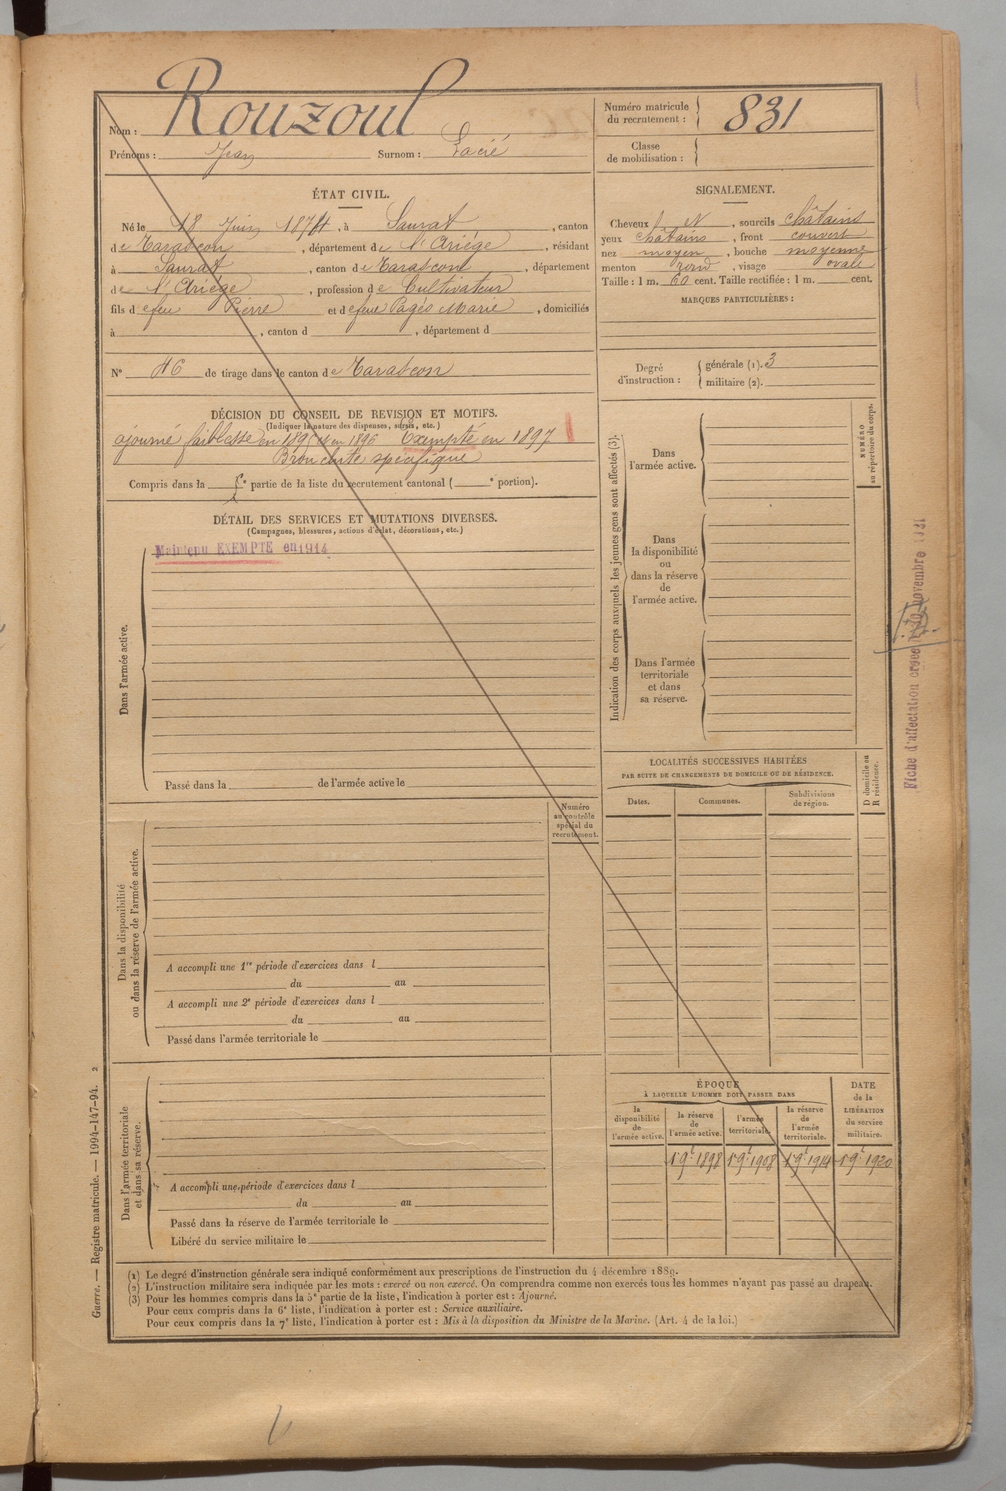 Nom : Rouzoul
Prénoms : Jean Surnom :
Numéro matricule du recrutement : 831
Classe de mobilisation :
ÉTAT CIVIL.
Né le 18 Juin 1874, à Saurat, canton
de Tarascon, département de l'Ariège, résidant
à Saurat, canton de Tarascon, département
de l'Ariège, profession de Cultivateur
fils de feu Pierre et de feue Pagès Marie, domiciliés
à , canton d , département d
N° 46 de tirage dans le canton de Tarascon
SIGNALEMENT.
Cheveux et N, sourcils châtains
yeux châtains, front couvert
nez moyen, bouche moyenne
menton rond, visage ovale
Taille : 1 m. 60 cent. Taille rectifiée : 1 m. cent.
MARQUES PARTICULIÈRES :
Degré d'instruction : générale (1). 3
militaire (2).
DÉCISION DU CONSEIL DE REVISION ET MOTIFS.
(Indiquer la nature des dispenses, sursis, etc.)
ajourné faiblesse en 1895 et en 1896 Exempté en 1897
Bronchite spécifique
Compris dans la e partie de la liste du recrutement cantonal ( e portion).
DÉTAIL DES SERVICES ET MUTATIONS DIVERSES.
(Campagnes, blessures, actions d'éclat, décorations, etc.)
Maintenu EXEMPTÉ en 1914
Dans l'armée active.
Passé dans la de l'armée active le
Numéro
au contrôle
spécial du
recrutement.
Dans la disponibilité
ou dans la réserve de l'armée active.
A accompli une 1re période d'exercices dans l
du au
A accompli une 2e période d'exercices dans l
du au
Passé dans l'armée territoriale le
Dans l'armée territoriale
et dans sa réserve.
A accompli une période d'exercices dans l
du au
Passé dans la réserve de l'armée territoriale le
Libéré du service militaire le
Indication des corps auxquels les jeunes gens sont affectés (3).
Dans
l'armée active.
Dans
la disponibilité
ou
dans la réserve
de
l'armée active.
Dans l'armée
territoriale
et dans
sa réserve.
NUMÉRO
au répertoire du corps.
LOCALITÉS SUCCESSIVES HABITÉES
PAR SUITE DE CHANGEMENTS DE DOMICILE OU DE RÉSIDENCE.
Dates. Communes. Subdivisions de région.
D domicile ou
R résidence.
ÉPOQUE
À LAQUELLE L'HOMME DOIT PASSER DANS
la disponibilité de l'armée active.
la réserve de l'armée active.
l'armée territoriale.
la réserve de l'armée territoriale.
DATE de la LIBÉRATION du service militaire.
1 9e 1898 1 9e 1908 1 9e 1914 1 9e 1920
Fiche d'affectation créée le 20 novembre 1921
(1) Le degré d'instruction générale sera indiqué conformément aux prescriptions de l'instruction du 4 décembre 1889.
(2) L'instruction militaire sera indiquée par les mots : exercé ou non exercé. On comprendra comme non exercés tous les hommes n'ayant pas passé au drapeau.
(3) Pour les hommes compris dans la 5e partie de la liste, l'indication à porter est : Ajourné.
Pour ceux compris dans la 6e liste, l'indication à porter est : Service auxiliaire.
Pour ceux compris dans la 7e liste, l'indication à porter est : Mis à la disposition du Ministre de la Marine. (Art. 4 de la loi.)
Guerre. — Registre matricule. — 1994-147-94. 2